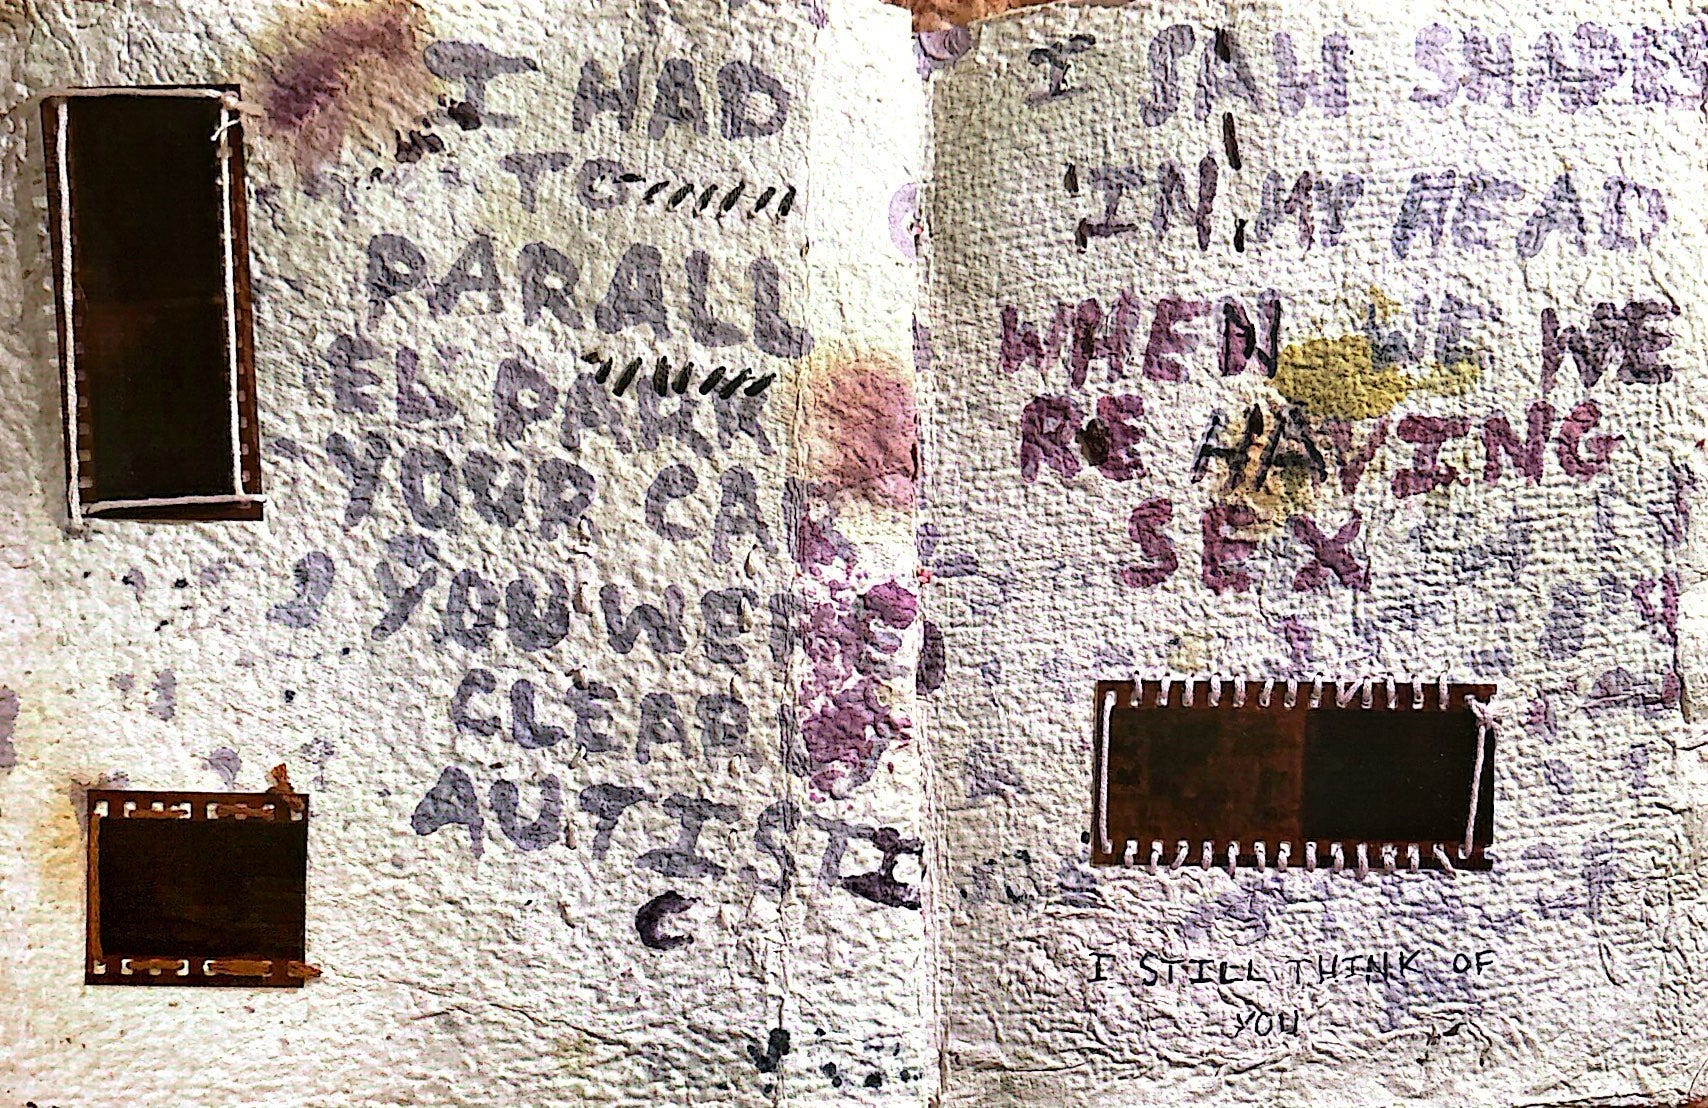 I HAD
TO
PARALL
EL PARK
YOUR CAR
2 YOU WERE
CLEAR
AUTISTI
C
I SAW SHAPES
IN MY HEAD
WHEN WE WE
RE HAVING
SEX
I STILL THINK OF
YOU